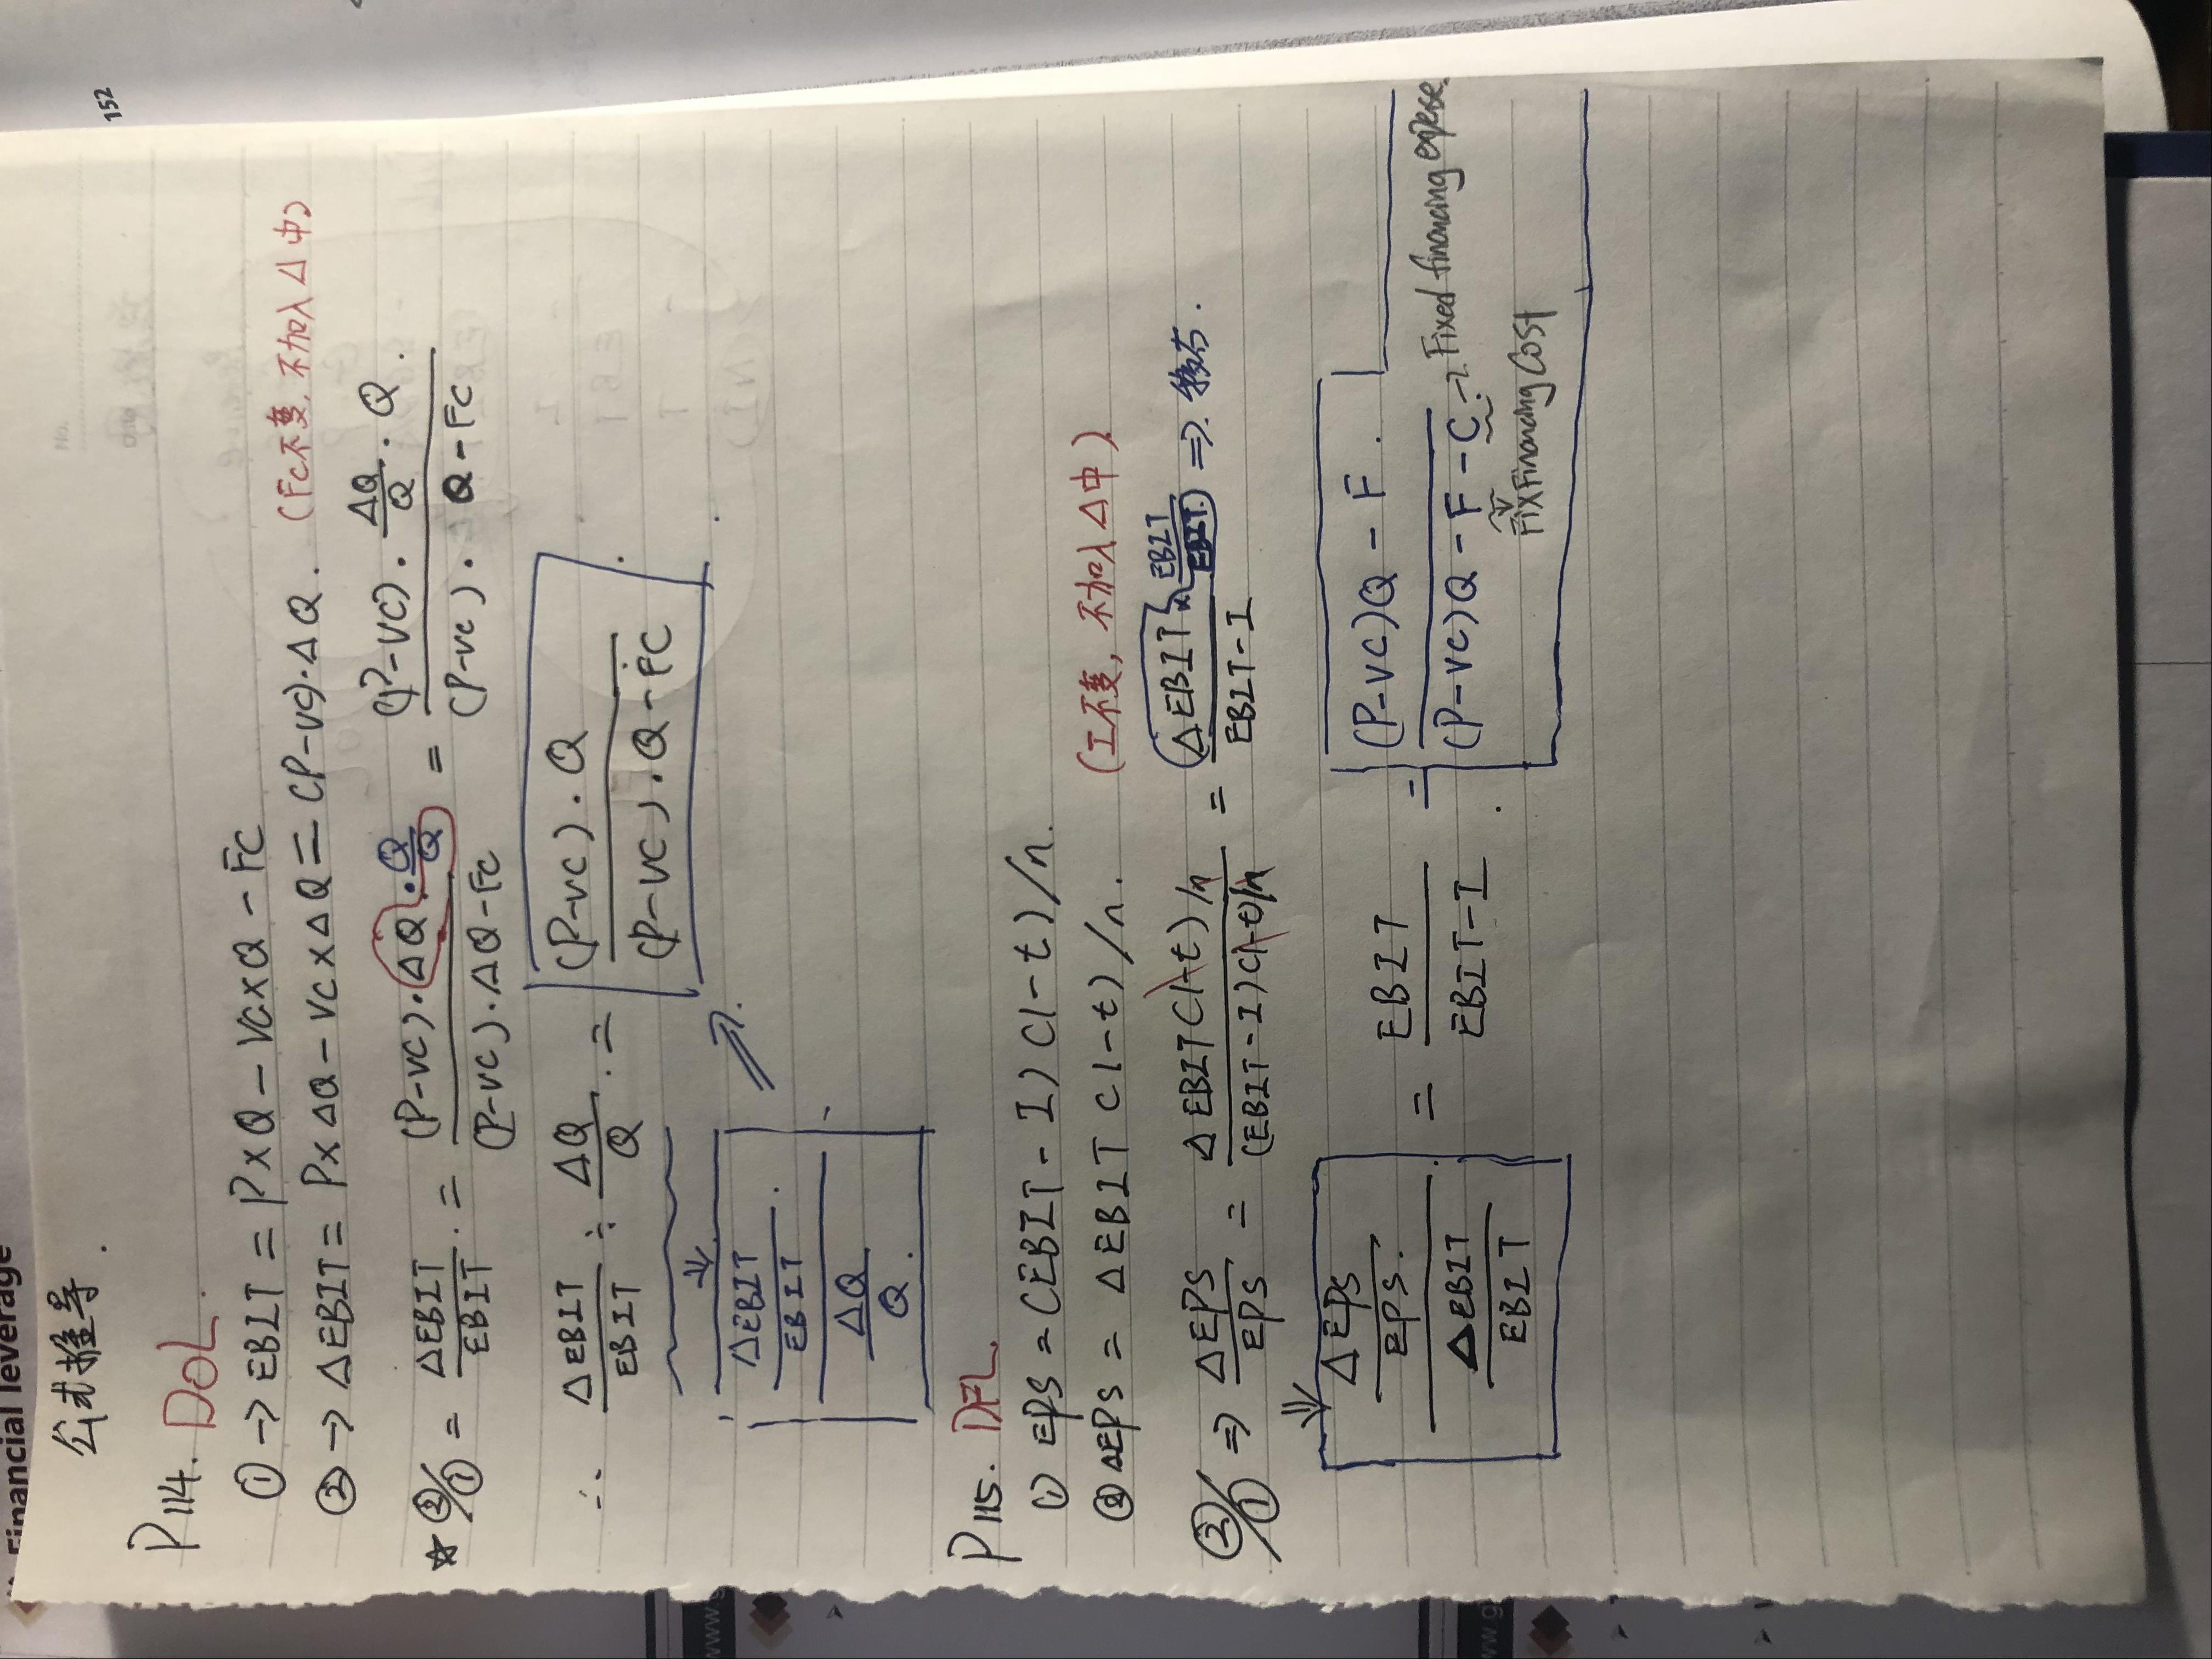 Financial leverage
152
公式推导.
P114. DOL.
① → EBIT = P×Q - VC×Q - FC
② → ΔEBIT = P×ΔQ - VC×ΔQ = (P-VC)·ΔQ. (FC不变, 不加入Δ中)
☆ ②/① = ΔEBIT/EBIT = (P-VC)·ΔQ·Q/Q / (P-VC)·ΔQ-FC = (P-VC)·ΔQ/Q·Q / (P-VC)·Q-FC
∴ ΔEBIT/EBIT ÷ ΔQ/Q = (P-VC)·Q / (P-VC)·Q-FC
⇓
ΔEBIT/EBIT / ΔQ/Q ⇒
P115. DFL
① EPS = (EBIT-I)(1-t)/n.
② ΔEPS = ΔEBIT(1-t)/n. (I不变, 不加入Δ中)
②/① ⇒ ΔEPS/EPS = ΔEBIT(1-t)/n / (EBIT-I)(1-t)/n = ΔEBIT×EBIT/EBIT / EBIT-I ⇒
⇓
ΔEPS/EPS / ΔEBIT/EBIT = EBIT / EBIT-I = (P-VC)Q-F / (P-VC)Q-F-C → Fixed financing expese.
Fix Financing Cost
www.g
www.g